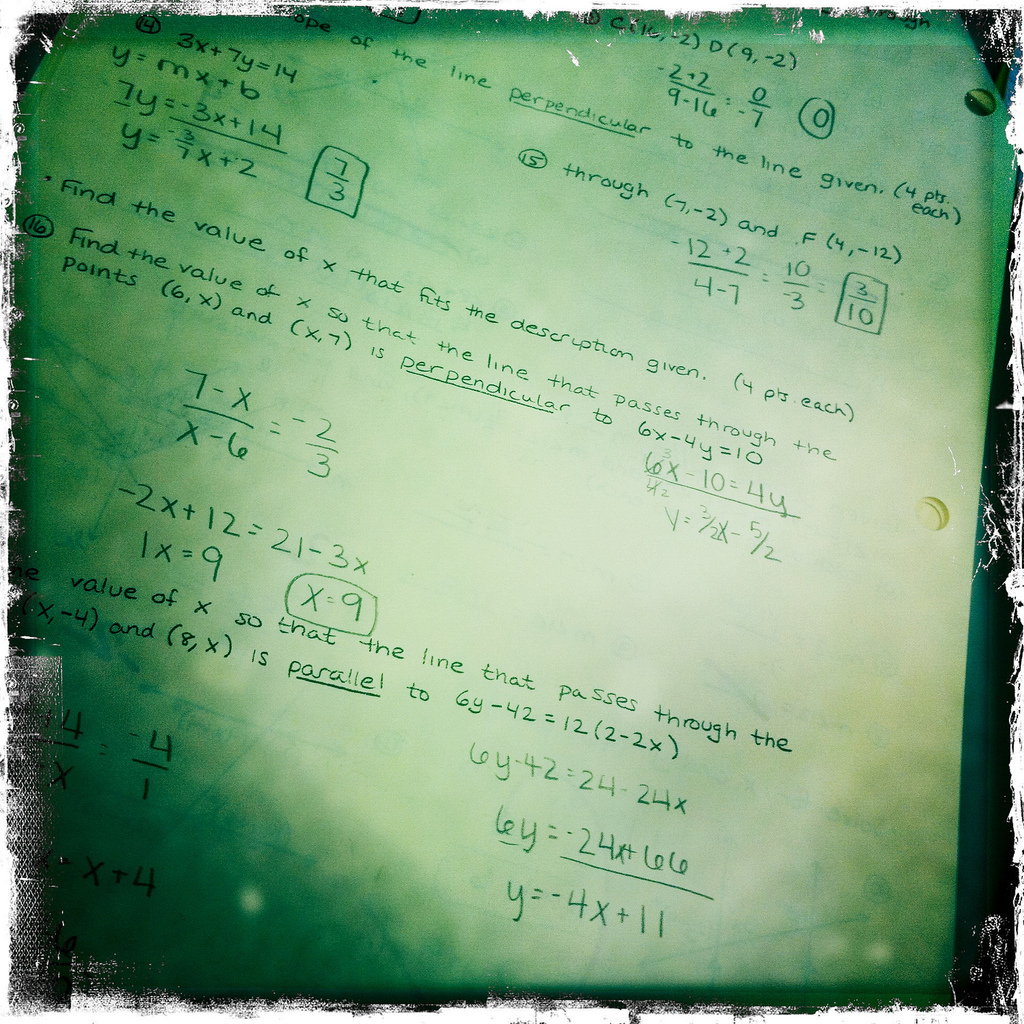 D C(16,-2) D(9,-2)
-2+2/9-16 = 0/-7 (0)
ope of the line perpendicular to the line given. (4 pts. each)
(14) 3x+7y=14
y=mx+b
7y=-3x+14
y=-3/7x+2
7/3
(15) through (7,-2) and F(4,-12)
-12+2/4-7 = 10/-3 = 3/10
Find the value of x that fits the description given. (4 pts. each)
(16) Find the value of x so that the line that passes through the
points (6,x) and (x,7) is perpendicular to 6x-4y=10
6x-10=4y
y=3/2x-5/2
7-x/x-6 = -2/3
-2x+12=21-3x
1x=9
x=9
value of x so that the line that passes through the
(x,-4) and (8,x) is parallel to 6y-42=12(2-2x)
6y-42=24-24x
6y=-24x+66
y=-4x+11
+4/-x = -4/1
-x+4